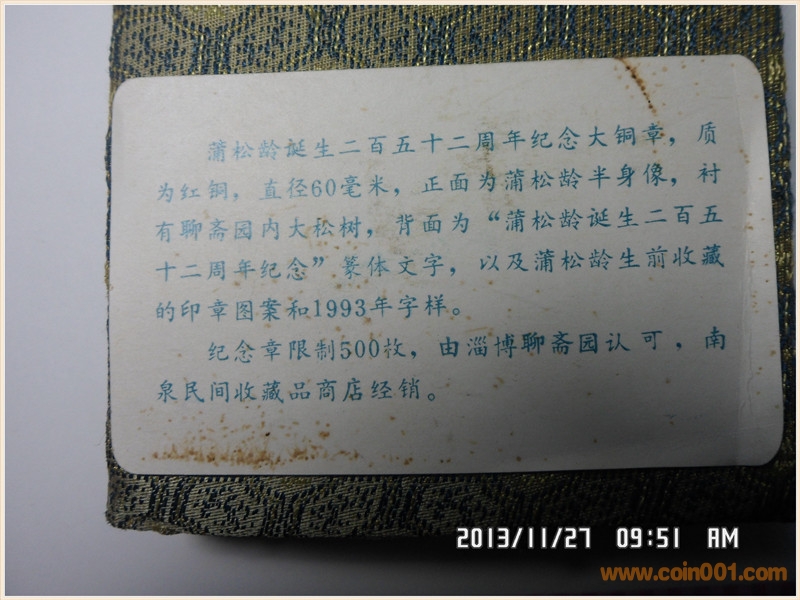 蒲松龄诞生二百五十二周年纪念大铜章，质
为红铜，直径60毫米，正面为蒲松龄半身像，衬
有聊斋园内大松树，背面为“蒲松龄诞生二百五
十二周年纪念”篆体文字，以及蒲松龄生前收藏
的印章图案和1993年字样。
纪念章限制500枚，由淄博聊斋园认可，南
泉民间收藏品商店经销。
2013/11/27 09:51 AM
www.coin001.com